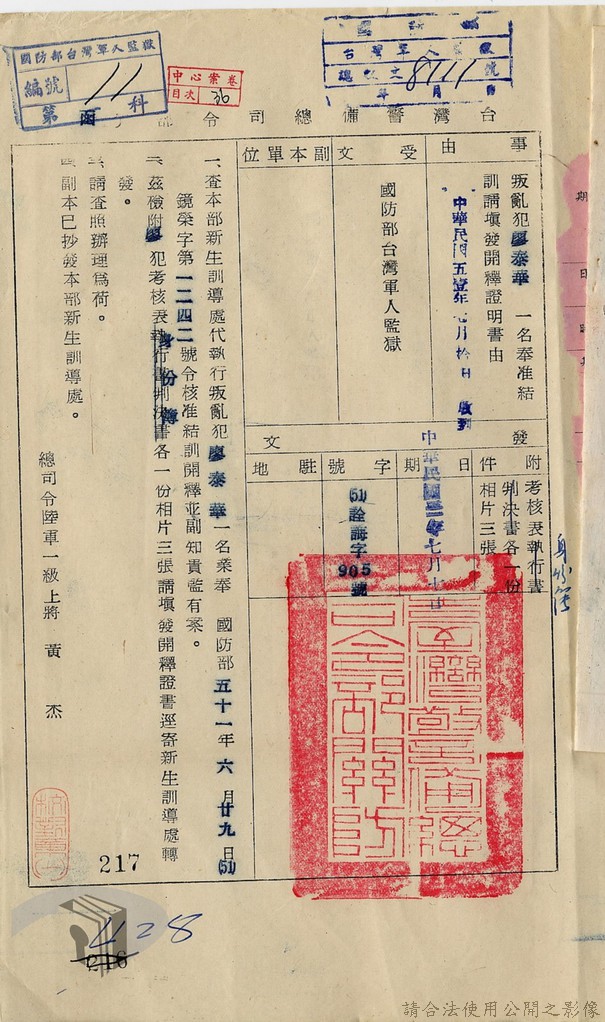 國防部台灣軍人監獄
編號 11
第 科
中心案卷
目次 36
國防部
台灣軍人監獄
總收文8111號
年 月 日
台灣警備總司令部 函
事由
叛亂犯廖泰華一名奉准結
訓請填發開釋證明書由
中華民國五壹年七月拾日 收到
受文
國防部台灣軍人監獄
副本單位
發文
附件
考核表執行書
判決書各一份
相片三張
身份簿
日期
中華民國五一年七月十日
字號
(51)詮誨字
905號
駐地
一、查本部新生訓導處代執行叛亂犯廖泰華一名業奉 國防部五十一年六月廿九日(51)
鏡榮字第一二四二號令核准結訓開釋並副知貴監有案。
二、茲檢附廖犯考核表執行書判決書各一份相片三張請填發開釋證書逕寄新生訓導處轉
身份簿
發。
三、請查照辦理爲荷。
四、副本已抄發本部新生訓導處。
總司令陸軍一級上將 黃 杰
台灣警備總
司令部關防
217
428
216
期
日
請合法使用公開之影像